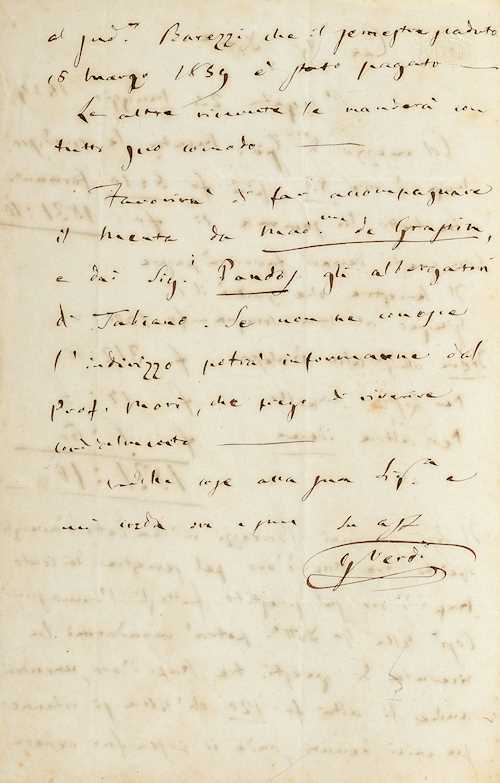 al sud.º Barezzi che il semestre scaduto
15 marzo 1859 è stato pagato —
Le altre ricevute le manderà con
tutto suo comodo —
Favorirà di far accompagnare
il Menta da Mad.me de
e dai Sig.i gli albergatori
di Tabiano. Se non ne conosce
l'indirizzo potrà informarsene dal
Prof. Mori, che prego di riverire
cordialmente —
cose alla sua Sig.a e
mi creda ora e sem Su aff
G Verdi